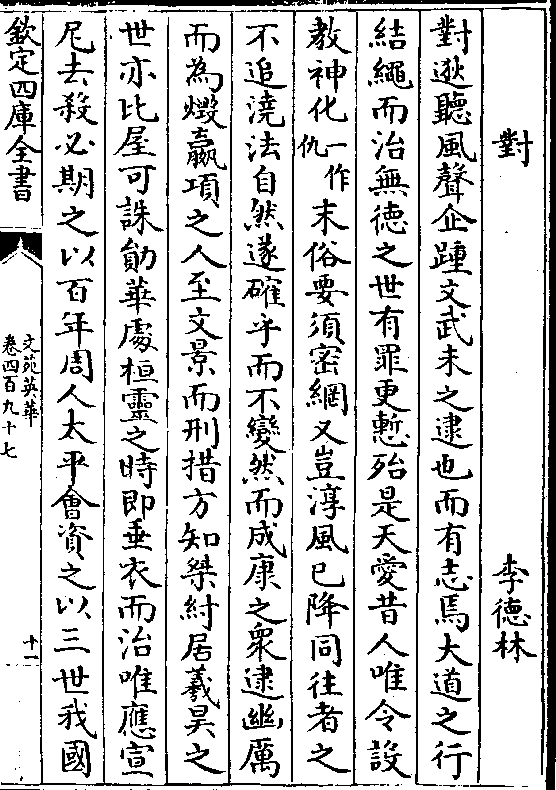 對　李德林
對逖聽風聲企踵文武未之逮也而有志焉大道之行
結繩而治無徳之世有罪更慙殆是天愛昔人唯令設
教神化一作仇末俗要須宻網又豈淳風已降同往者之
不追澆法自然遂確乎而不變然而成康之衆逮幽厲
而為燬嬴項之人至文景而刑措方知桀紂居羲昊之
世亦比屋可誅勛華處桓靈之時即垂衣而治唯應宣
尼去殺必期之以百年周人太平會資之以三世我國
欽定四庫全書
文苑英華
卷四百九十七
十一